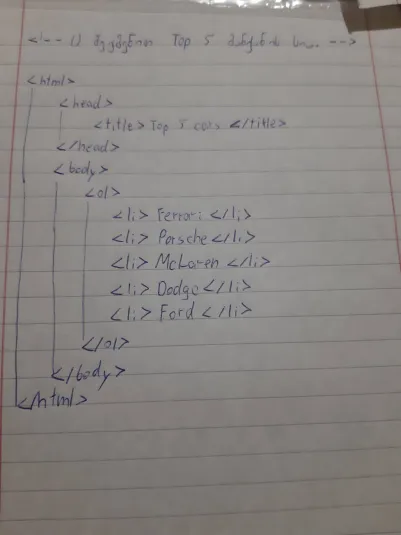 <!-- 1) შევქმნოთ Top 5 მანქანის სია. -->
<html>
<head>
<title> Top 5 cars </title>
</head>
<body>
<ol>
<li> Ferrari </li>
<li> Porsche </li>
<li> McLaren </li>
<li> Dodge </li>
<li> Ford </li>
</ol>
</body>
</html>